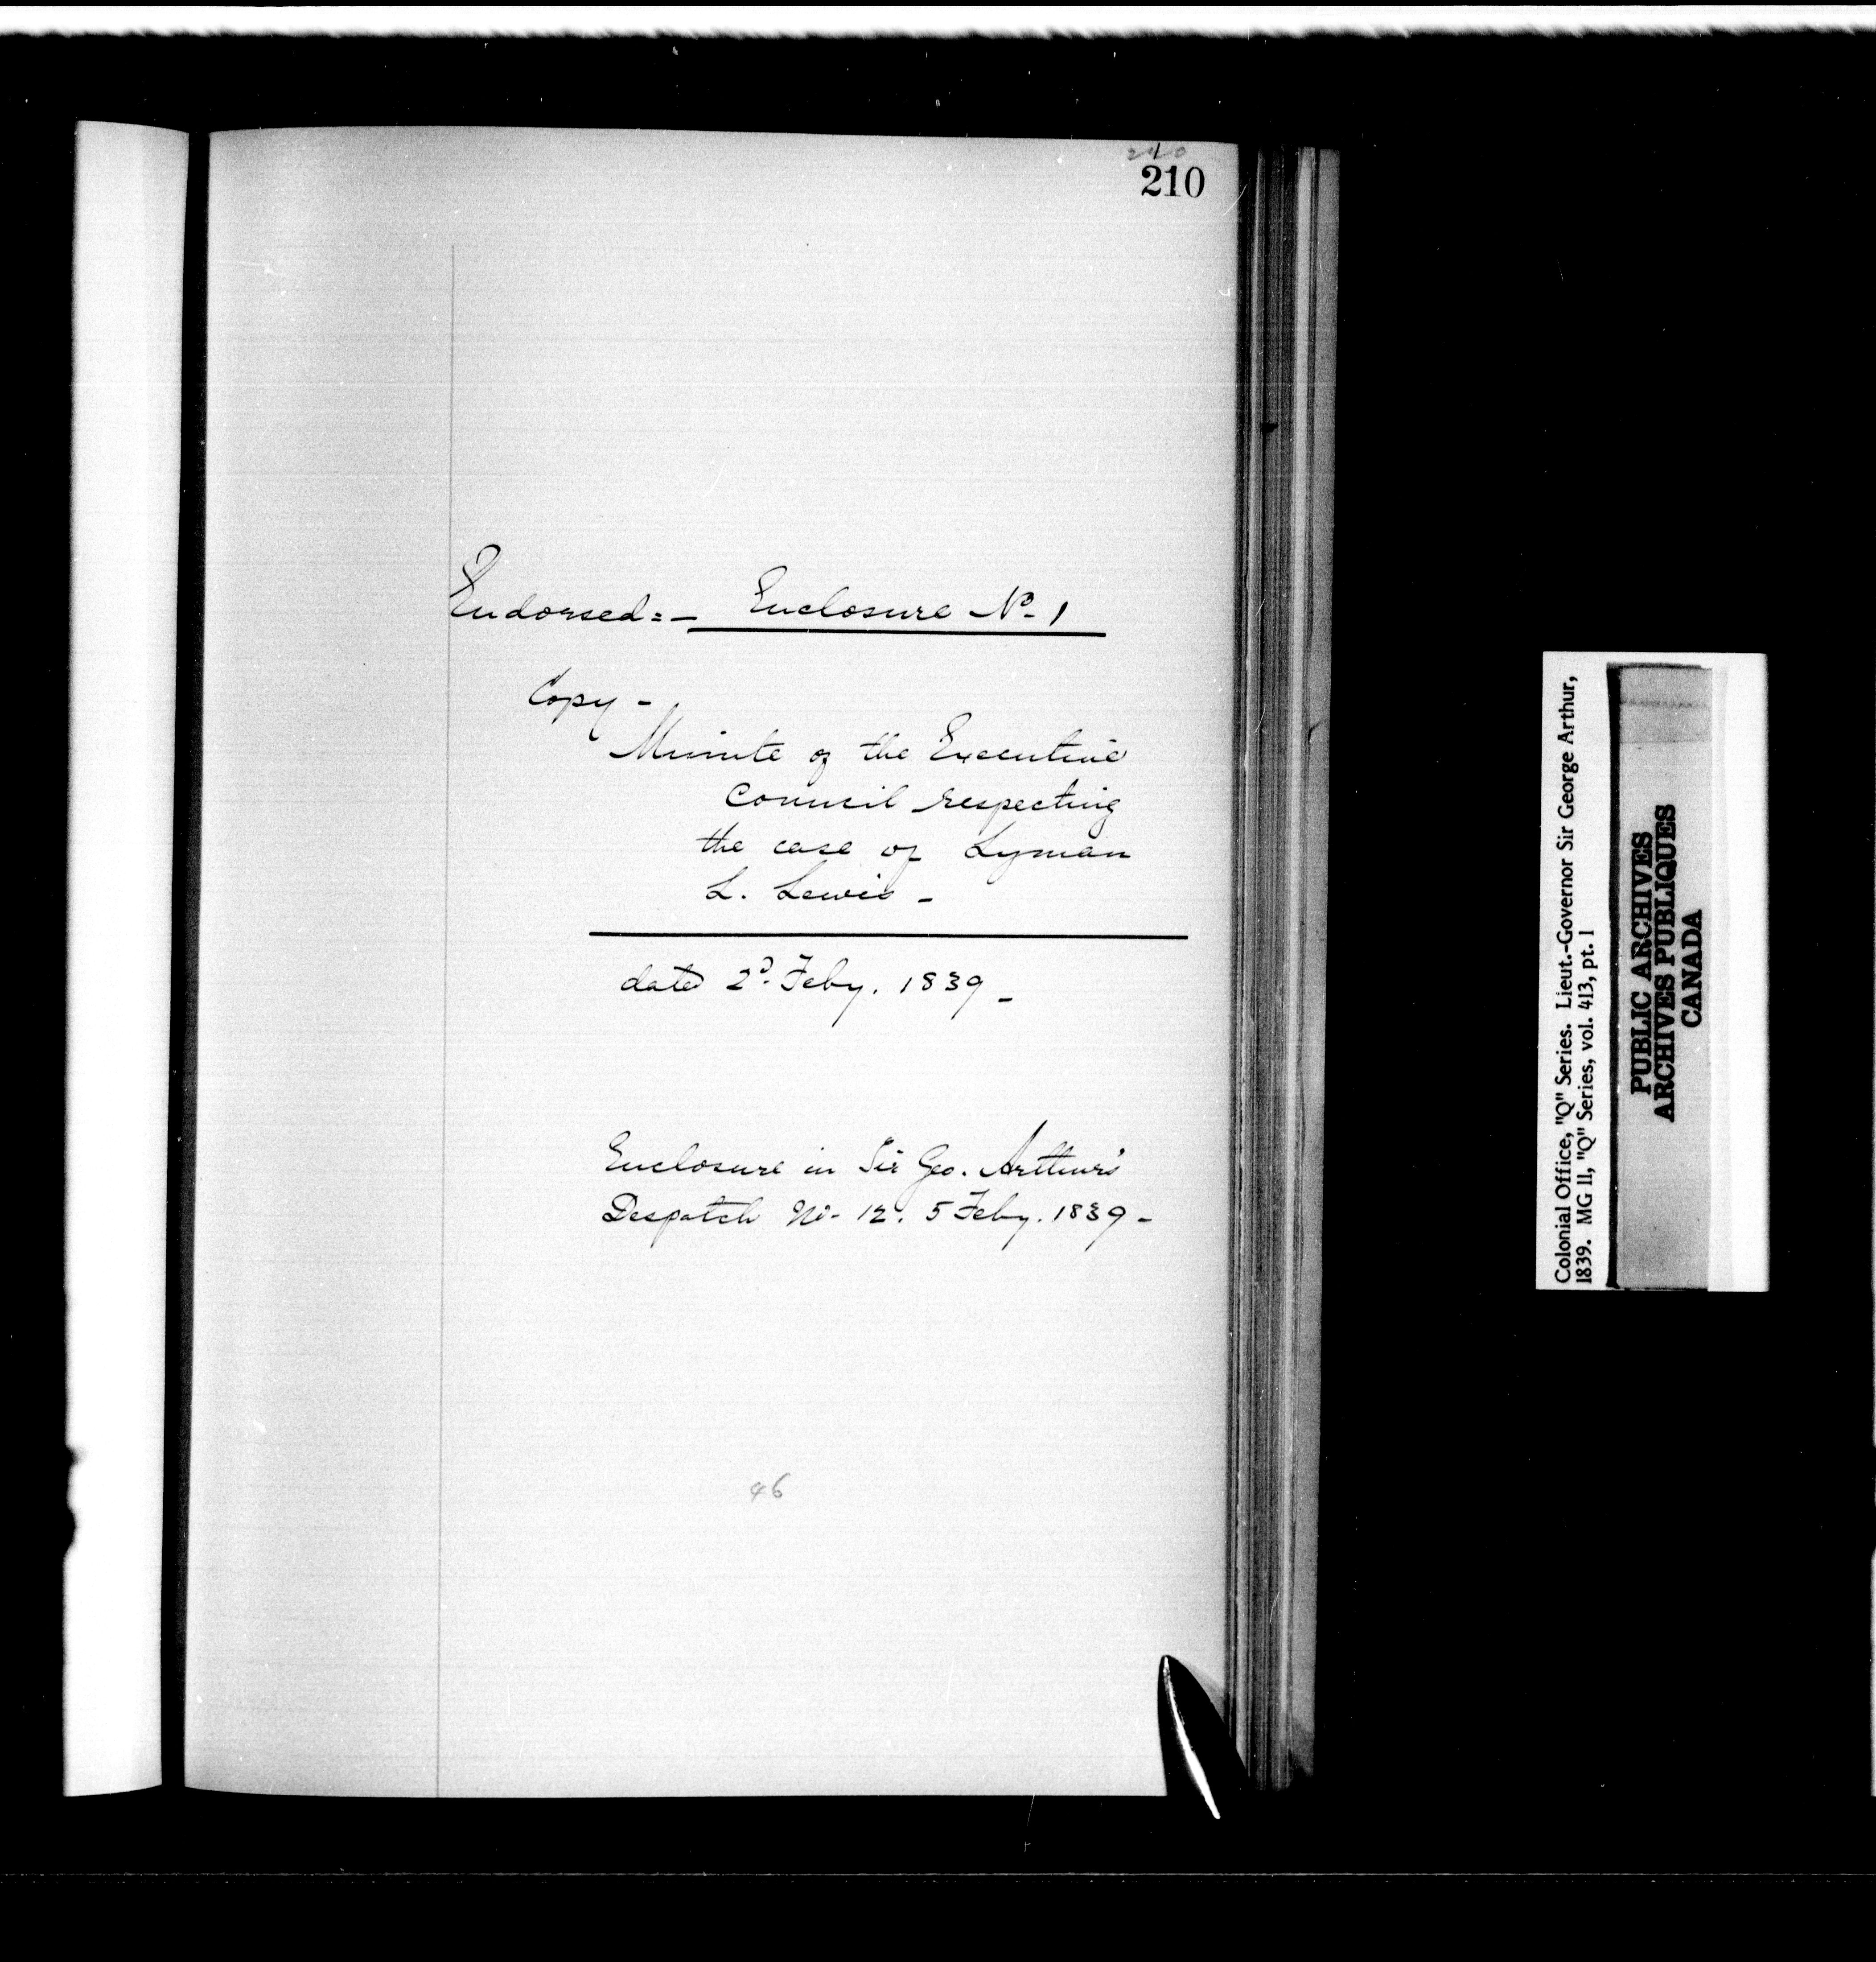 210
210
Endorsed:- Enclosure No. 1
Copy -
Minute of the Executive
Council respecting
the case of Lyman
L. Lewis -
dated 2d. Feby. 1839 -
Enclosure in Sir Geo. Arthur's
Despatch No. 12. 5 Feby. 1839 -
46
Colonial Office, "Q" Series. Lieut.-Governor Sir George Arthur,
1839. MG 11, "Q" Series, vol. 413, pt. 1
PUBLIC ARCHIVES
ARCHIVES PUBLIQUES
CANADA